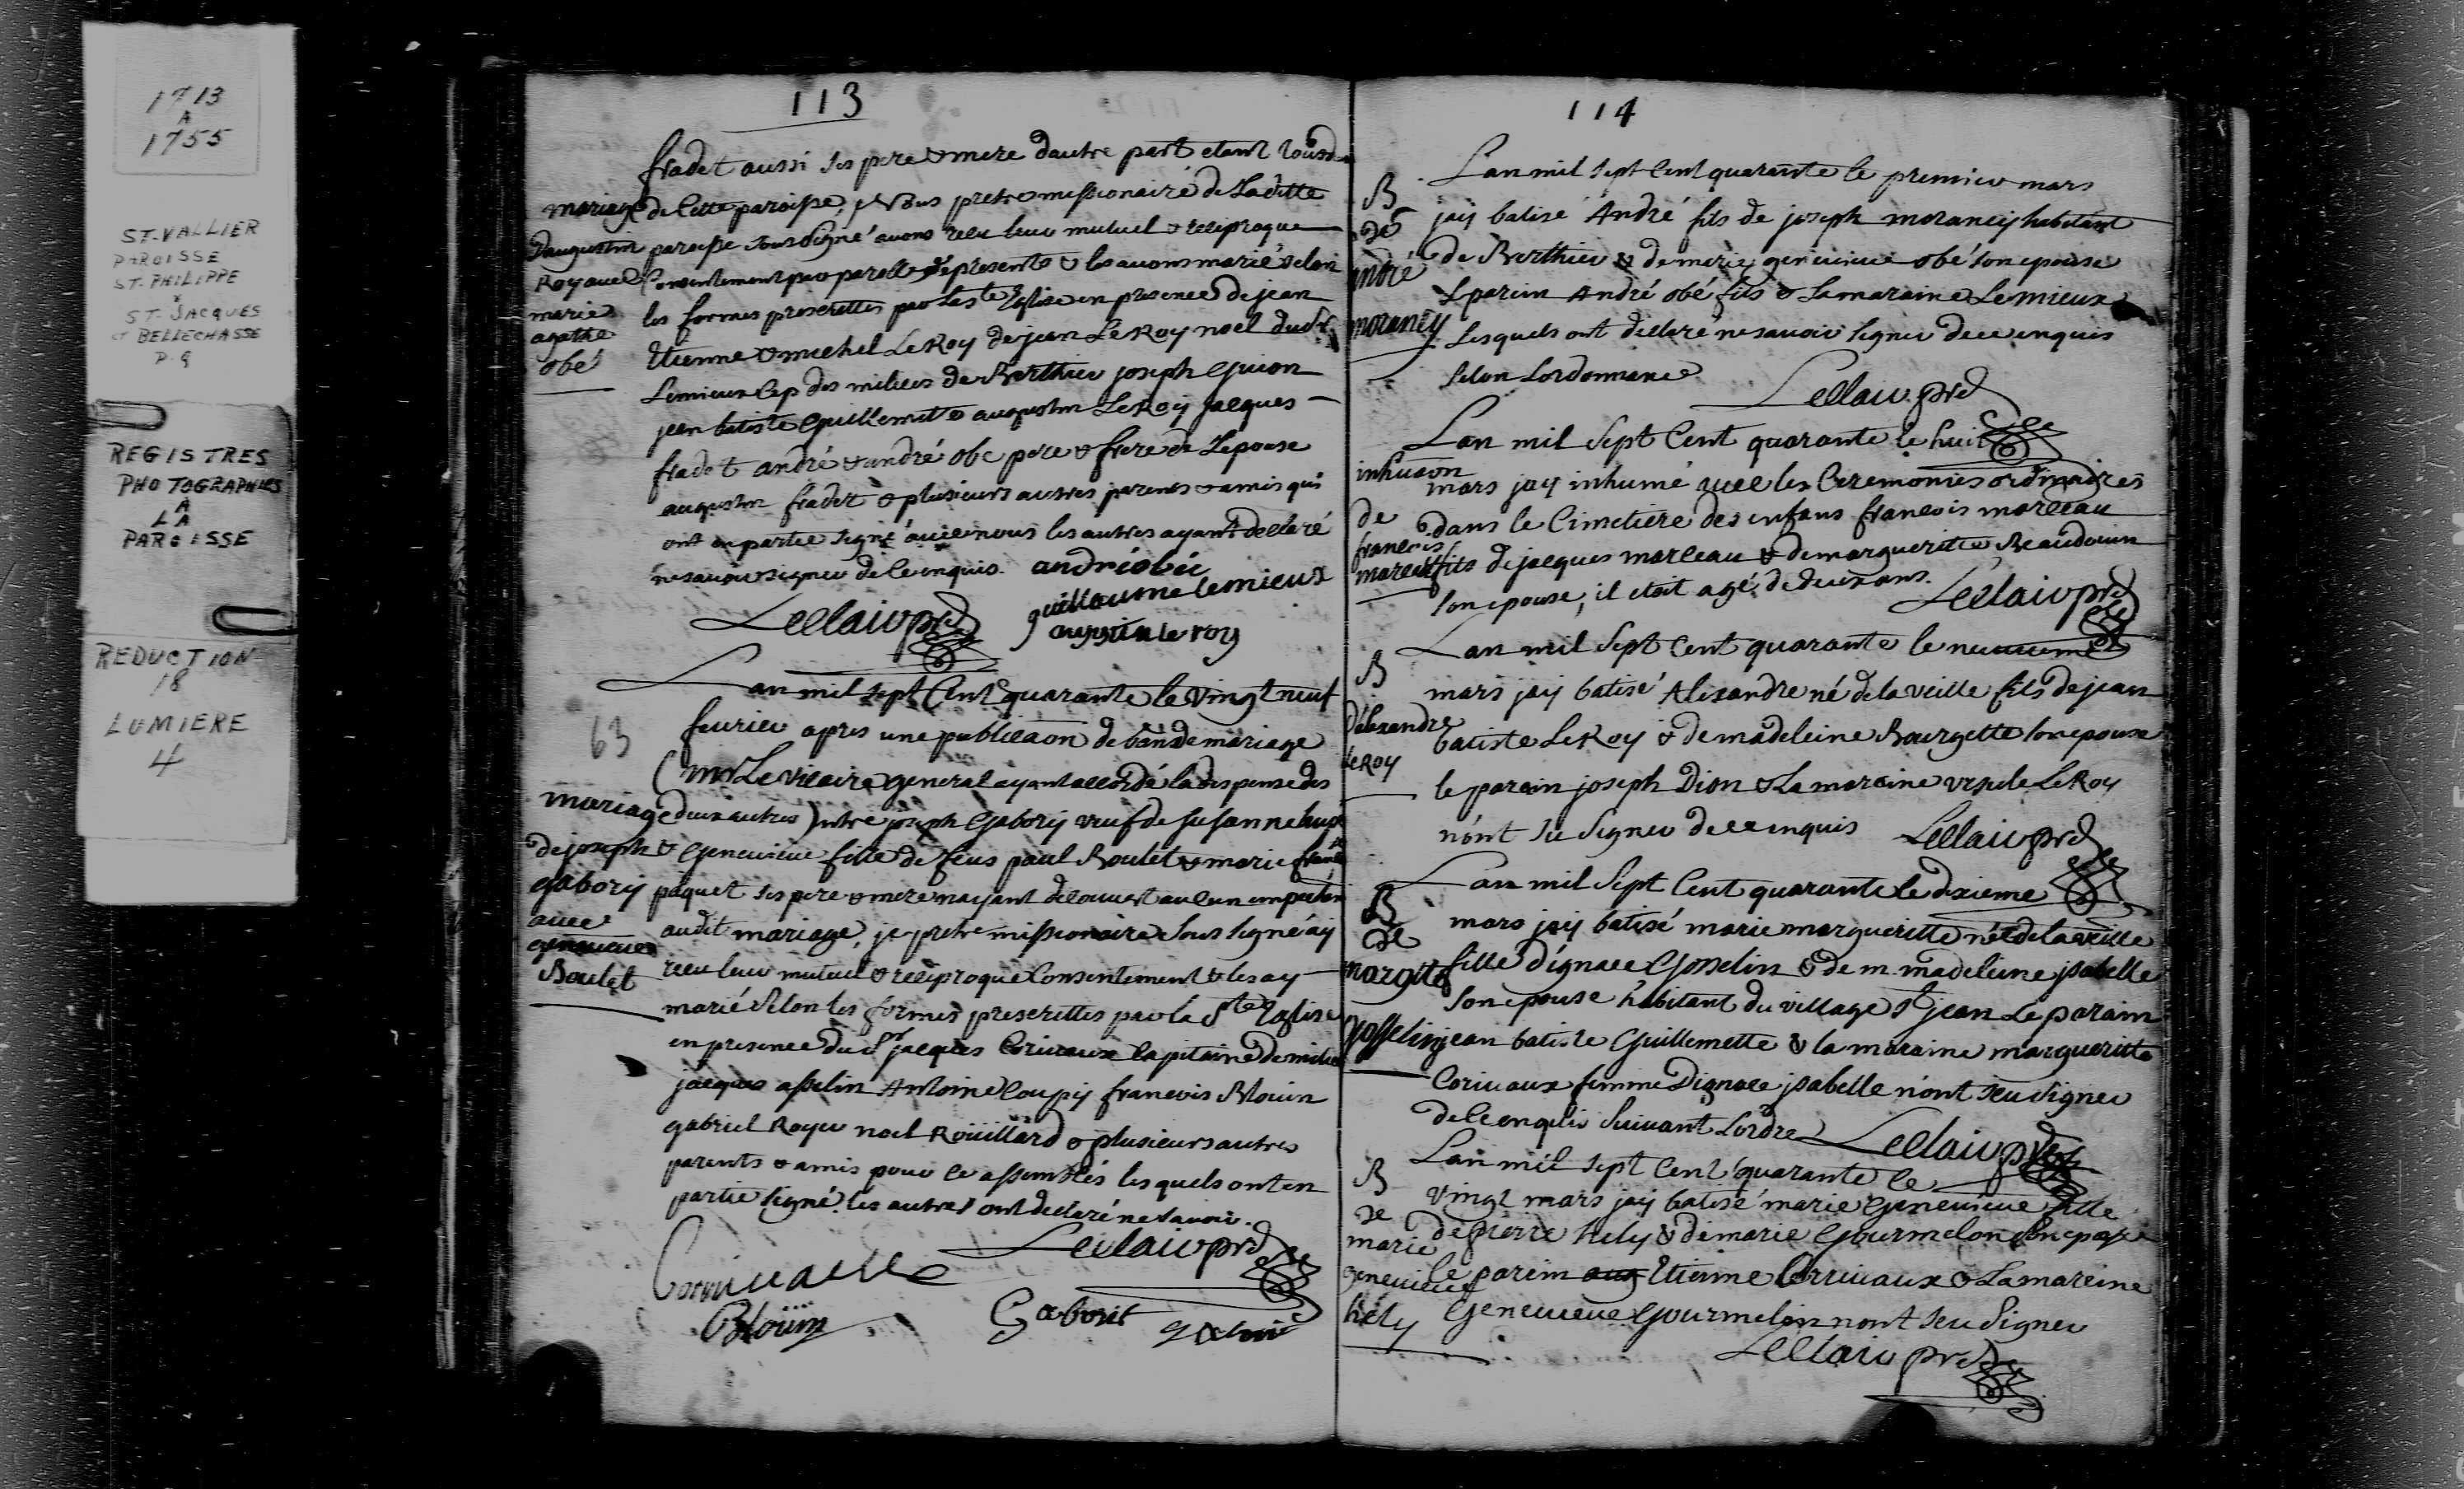 1713
A
1755
ST. VALLIER
PAROISSE
ST. PHILIPPE
&
ST. JACQUES
CT BELLECHASSE
P.Q
REGISTRES
PHOTOGRAPHIES
A
LA
PAROISSE
REDUCTION
18
LUMIERE
4
113
fradet aussi ses pere & mere dautre part etant tous de
mariage
daugustin
Roy avec
marie
agathe
obé
de cette paroisse, Nous pretre missionaire de Laditte
paroisse soussigné avons receu leur mutuel & reciproque
Consentement par parolle de presents & les avons marié selon
les formes prescrittes par la Ste Eglise en presence de jean
Etienne & michel LeRoy de jean LeRoy noel dud.
Lemieux Cap des milices de Berthier joseph Guion
jean batiste Guillemette augustin LeRoy jacques
fradet andré & andré obé pere & frere de Lepouse
augustin fradet & plusieurs autres parents & amis qui
ont en partie signé avec nous les autres ayant declaré
ne savoir signer de ce enquis. andré obé
Leclair ptre
guillaume lemieux
augustin le roy
Lan mil sept Cent quarante le vingt neuf
63
fevrier apres une publicaon de bans de mariage
(mr Le vicaire general ayant accordé la dispense des
mariage
de joseph
gabory
avec
genevieve
Boulet
deux autres) entre joseph Gabory veuf de Susanne
& Genevieve fille de feus paul Boulet & marie franc
paquet ses pere & mere nayant decouvert aucun
audit mariage, je pretre missionaire sous signé ay
receu leur mutuel & reciproque Consentement & les ay
marié selon les formes prescrittes par la Ste Eglise
en presence du Sr jacques Corivaux Capitaine de milice
jacques asselin Antoine Coupy francois Blouin
gabriel Royer noel Roüillard & plusieurs autres
parents & amis pour ce assemblés lesquels ont en
partie signé. les autres ont declaré ne savoir.
Leclair ptre
Corivaux
Blouin
Gaborit
114
Lan mil sept Cent quarante le premier mars
B
de
André
morancy
jay batisé André fils de joseph morancy habitant
de Berthier & de marie genevieve obé son epouse
Lparein André obé fils & La maraine Lemieux
Lesquels ont declaré ne savoir signer de ce enquis
selon Lordonnance
Leclair ptre
Lan mil sept Cent quarante le huit
inhuaon
de
francois
marceau
mars jay inhumé avec les Ceremonies ordinaires
dans le Cimetiere des enfans francois marceau
fils de jacques marceau & de marguerite Beaudouin
son epouse, il etoit agé de deux ans. Leclair ptre
Lan mil sept Cent quarante le neuvieme
B
dAlexandre
LeRoy
mars jay batisé Alexandre né de la veille fils de jean
batiste LeRoy & de madeleine Bourgette son epouse
le parein joseph Dion & La maraine ursule LeRoy
n'ont su signer de ce enquis Leclair ptre
Lan mil sept Cent quarante le dixieme
B
de
margtte
Gosselin
mars jay batisé marie margueritte née de la veille
fille dignace Gosselin & de m. madeleine jsabelle
son epouse habitant du village St jean Le parain
jean batiste Guillemette & la maraine margueritte
Corivaux femme Dignace jsabelle n'ont seu signer
de ce enquis suivant Lordre Leclair ptre
Lan mil sept Cent quarante le
B
de
marie
genevieve
hely
vingt mars jay batisé marie Genevieve fille
de pierre hely & de marie Gourmelon son epouse
le parein aug Etienne Corrivaux & La mareine
Genevieve Gourmelon nont seu signer
Leclair ptre